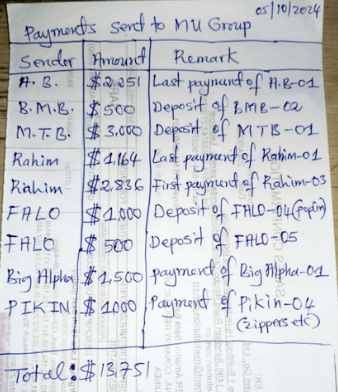 05/10/2024
Payments Sent to MU Group
Sender Amount Remark
A.B. $2,251 Last payment of A.B-01
B.M.B. $500 Deposit of BMB-02
M.T.B. $3,000 Deposit of MTB-01
Rahim $1,164 Last payment of Rahim-01
Rahim $2,836 First payment of Rahim-03
FALO $1,000 Deposit of FALO-04
FALO $500 Deposit of FALO-05
Big Alpha $1,500 payment of Big Alpha-01
PIKIN $1000 Payment of Pikin-04
(zippers etc)
Total: $13,751